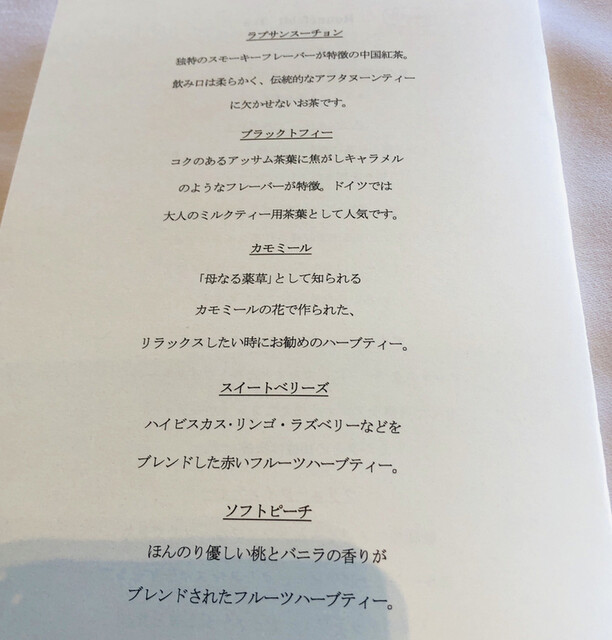 ラプサンスーチョン
独特のスモーキーフレーバーが特徴の中国紅茶。
飲み口は柔らかく、伝統的なアフタヌーンティー
に欠かせないお茶です。
ブラックトフィー
コクのあるアッサム茶葉に焦がしキャラメル
のようなフレーバーが特徴。ドイツでは
大人のミルクティー用茶葉として人気です。
カモミール
「母なる薬草」として知られる
カモミールの花で作られた、
リラックスしたい時にお勧めのハーブティー。
スイートベリーズ
ハイビスカス・リンゴ・ラズベリーなどを
ブレンドした赤いフルーツハーブティー。
ソフトピーチ
ほんのり優しい桃とバニラの香りが
ブレンドされたフルーツハーブティー。